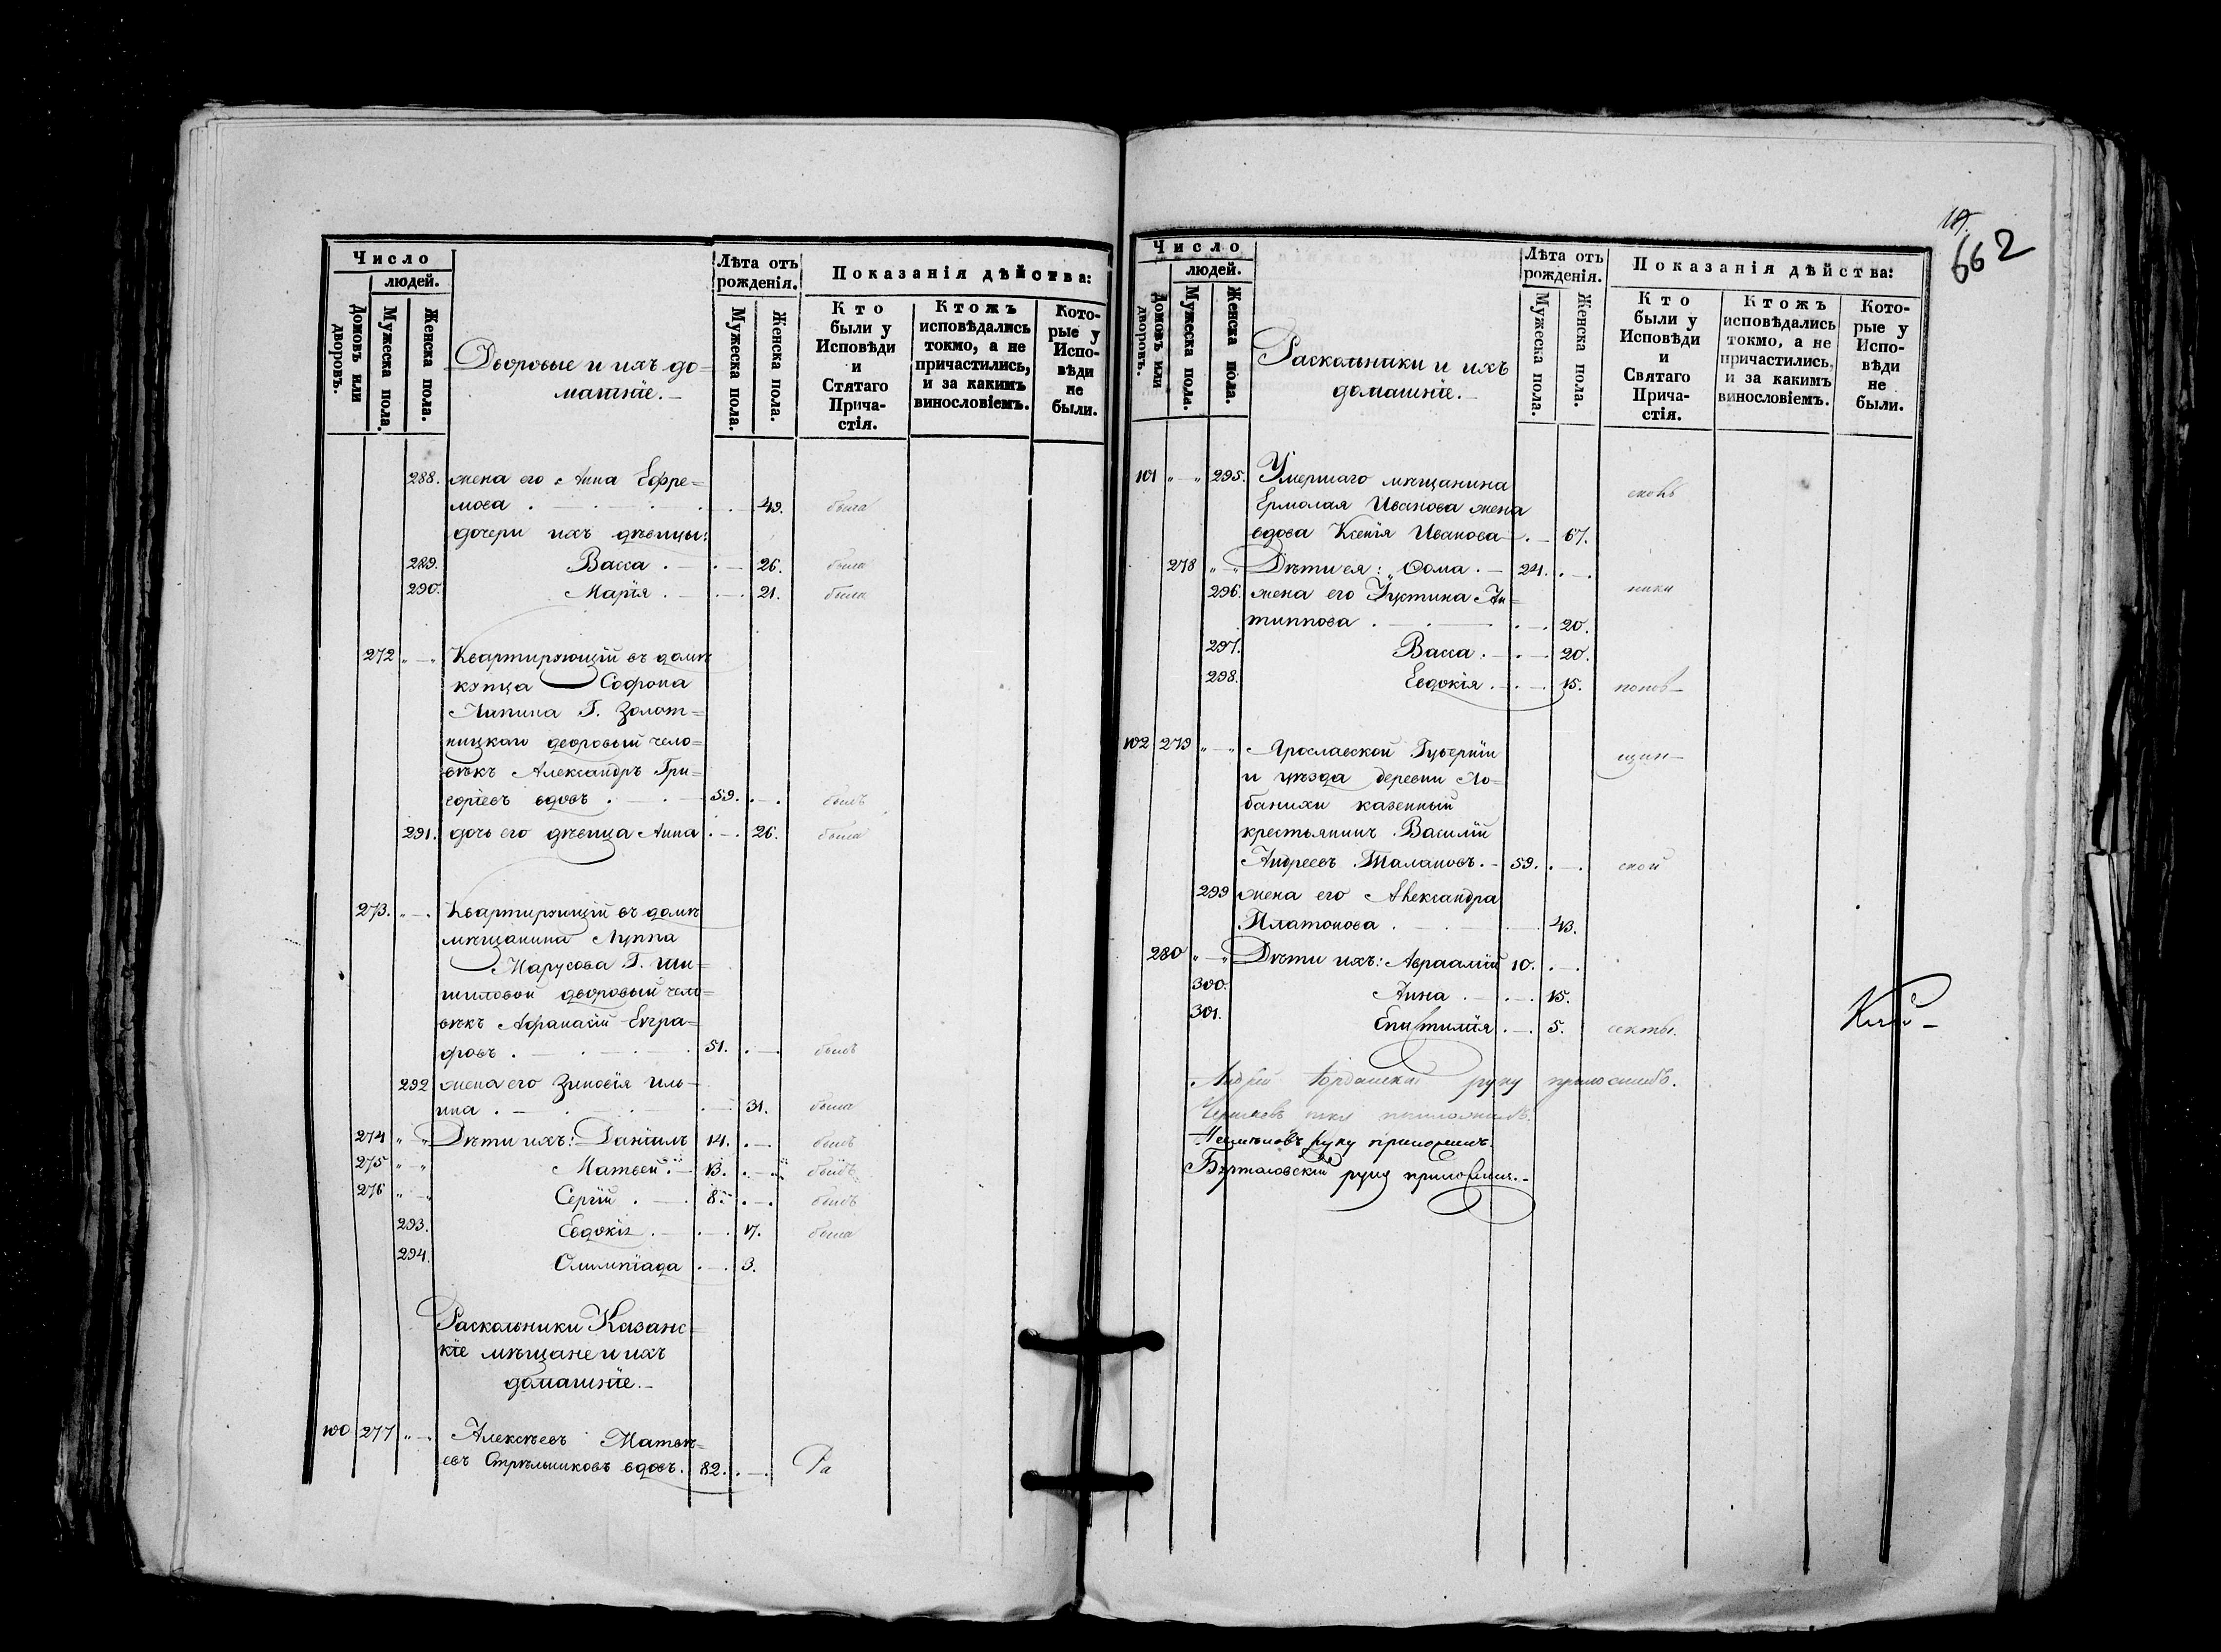 Число
людей.
Домовъ или дворовъ.
Мужеска пола.
Женска пола.
Дворовые и ихъ до=
машніе.—
Лѣта отъ
рожденія.
Мужеска пола.
Женска пола.
Показанія дѣйства:
Кто
были у
Исповѣди
и
Стятаго
Прича-
стія.
Ктожъ
исповѣдались
токмо, а не
причастились,
и за какимъ
винословіемъ.
Кото-
рые у
Испо-
вѣди
не
были.
288. жена его Анна Ефре=
мова . — . — . 49. была
дочери ихъ дѣвицы:
289. Васса . — . — 26. была
290. Марія . — . — . 21. была
272 „ — „ Квартирующій въ домѣ
купца Софрона
Лапина Г. Золот=
ницкаго дворовый чело=
вѣкъ Александръ Гри=
горіевъ вдовъ . — . — 59. . — . былъ
291. дочь его дѣвица Анна . — . 26. была
273. „ — . Квартирующій въ домѣ
мѣщанина Луппа
Марусова Г. Ши=
шиловой дворовый чело=
вѣкъ Афанасій Евгра=
фовъ . — . — . — . 51. . — . былъ
292 жена его Зиновія Иль—
ина . — . — . — 31. была
274 „ „ Дѣти ихъ: Даніилъ 14. . — . былъ
275 „ „ Матвей . — 13. . — былъ
276 „ — „ Сергій . — . 8. . — . былъ
293. Евдокія . — . — . 17. была
294. Олимпіада . — . 3.
Раскольники Казанс=
кіе мѣщане и ихъ
домашніе.—
100 277 „ — . Алексѣевъ Матвѣ=
евъ Стрѣльниковъ вдовъ. 82. . — . Ра
19.
662
Число
людей.
Домовъ или дворовъ.
Мужеска пола.
Женска пола.
Раскольники и ихъ
домашніе.—
Лѣта отъ
рожденія.
Мужеска пола.
Женска пола.
Показанія дѣйства:
Кто
были у
Исповѣди
и
Святаго
Прича-
стія.
Ктожъ
исповѣдались
токмо, а не
причастились,
и за какимъ
винословіемъ.
Кото-
рые у
Испо-
вѣди
не
были.
101 „ — „ 295. Умершаго мѣщанина
Ермолая Иванова жена
вдова Ксенія Иванова — . — 67.
сколь
278 „ — „ Дѣти ея: Ѳома . — 24. . — .
296. жена его Устина Ан=
типпова . — . — . — . 20.
ники
297. Васса . — . — . 20.
298. Евдокія . — . — 15. попов—
102 279 „ — „ Ярославской Губерніи
и уѣзда деревни Ло=
банихи казенный
щин—
крестьянинъ Василій
Андреевъ Талановъ. — 59. . — . ской
299 жена его Александра
Платонова . — . — . 43.
280 „ — „ Дѣти ихъ: Авраамій 10. . — .
300. Анна . — . — . 15.
301. Епистимія . — . 5. секты.
руку приложилъ.
руку приложилъ.
руку приложилъ.—